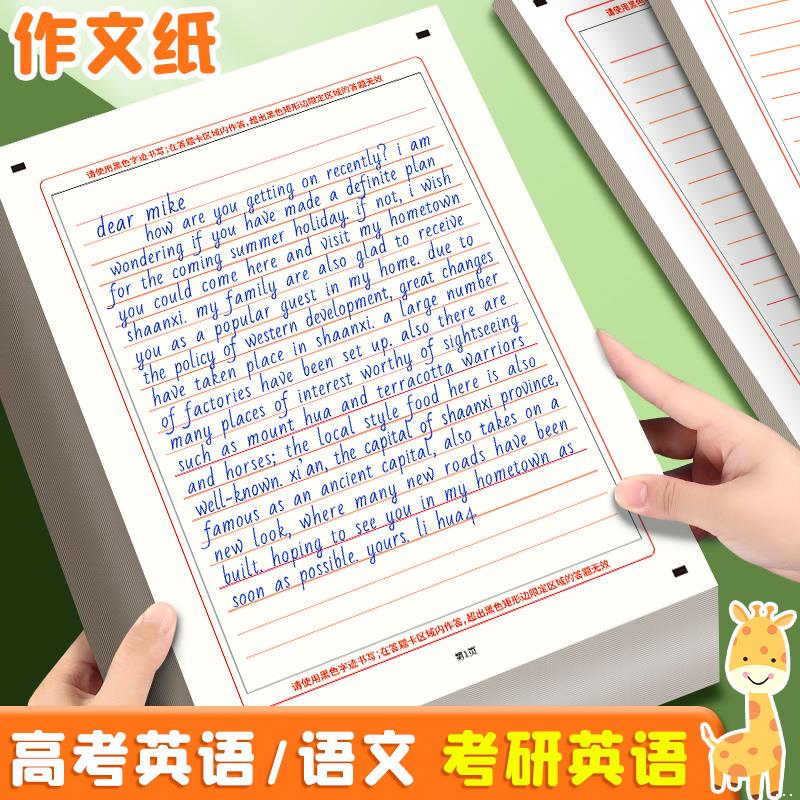 作文纸
请使用黑色字迹书写;在答题卡区域内作答,超出黑色矩形边限定区域的答题无效
dear mike
how are you getting on recently? i am
wondering if you have made a definite plan
for the coming summer holiday. if not, i wish
you could come here and visit my hometown
shaanxi. my family are also glad to receive
you as a popular guest in my home. due to
the policy of western development, great changes
have taken place in shaanxi. a large number
of factories have been set up. also there are
many places of interest worthy of sightseeing
such as mount hua and terracotta warriors
and horses; the local style food here is also
well-known. xi'an, the capital of shaanxi province,
famous as an ancient capital, also takes on a
new look, where many new roads have been
built. hoping to see you in my hometown as
soon as possible. yours. li hua4
请使用黑色字迹书写;在答题卡区域内作答,超出黑色矩形边限定区域的答题无效
第1页
请使用黑色
高考英语/语文 考研英语